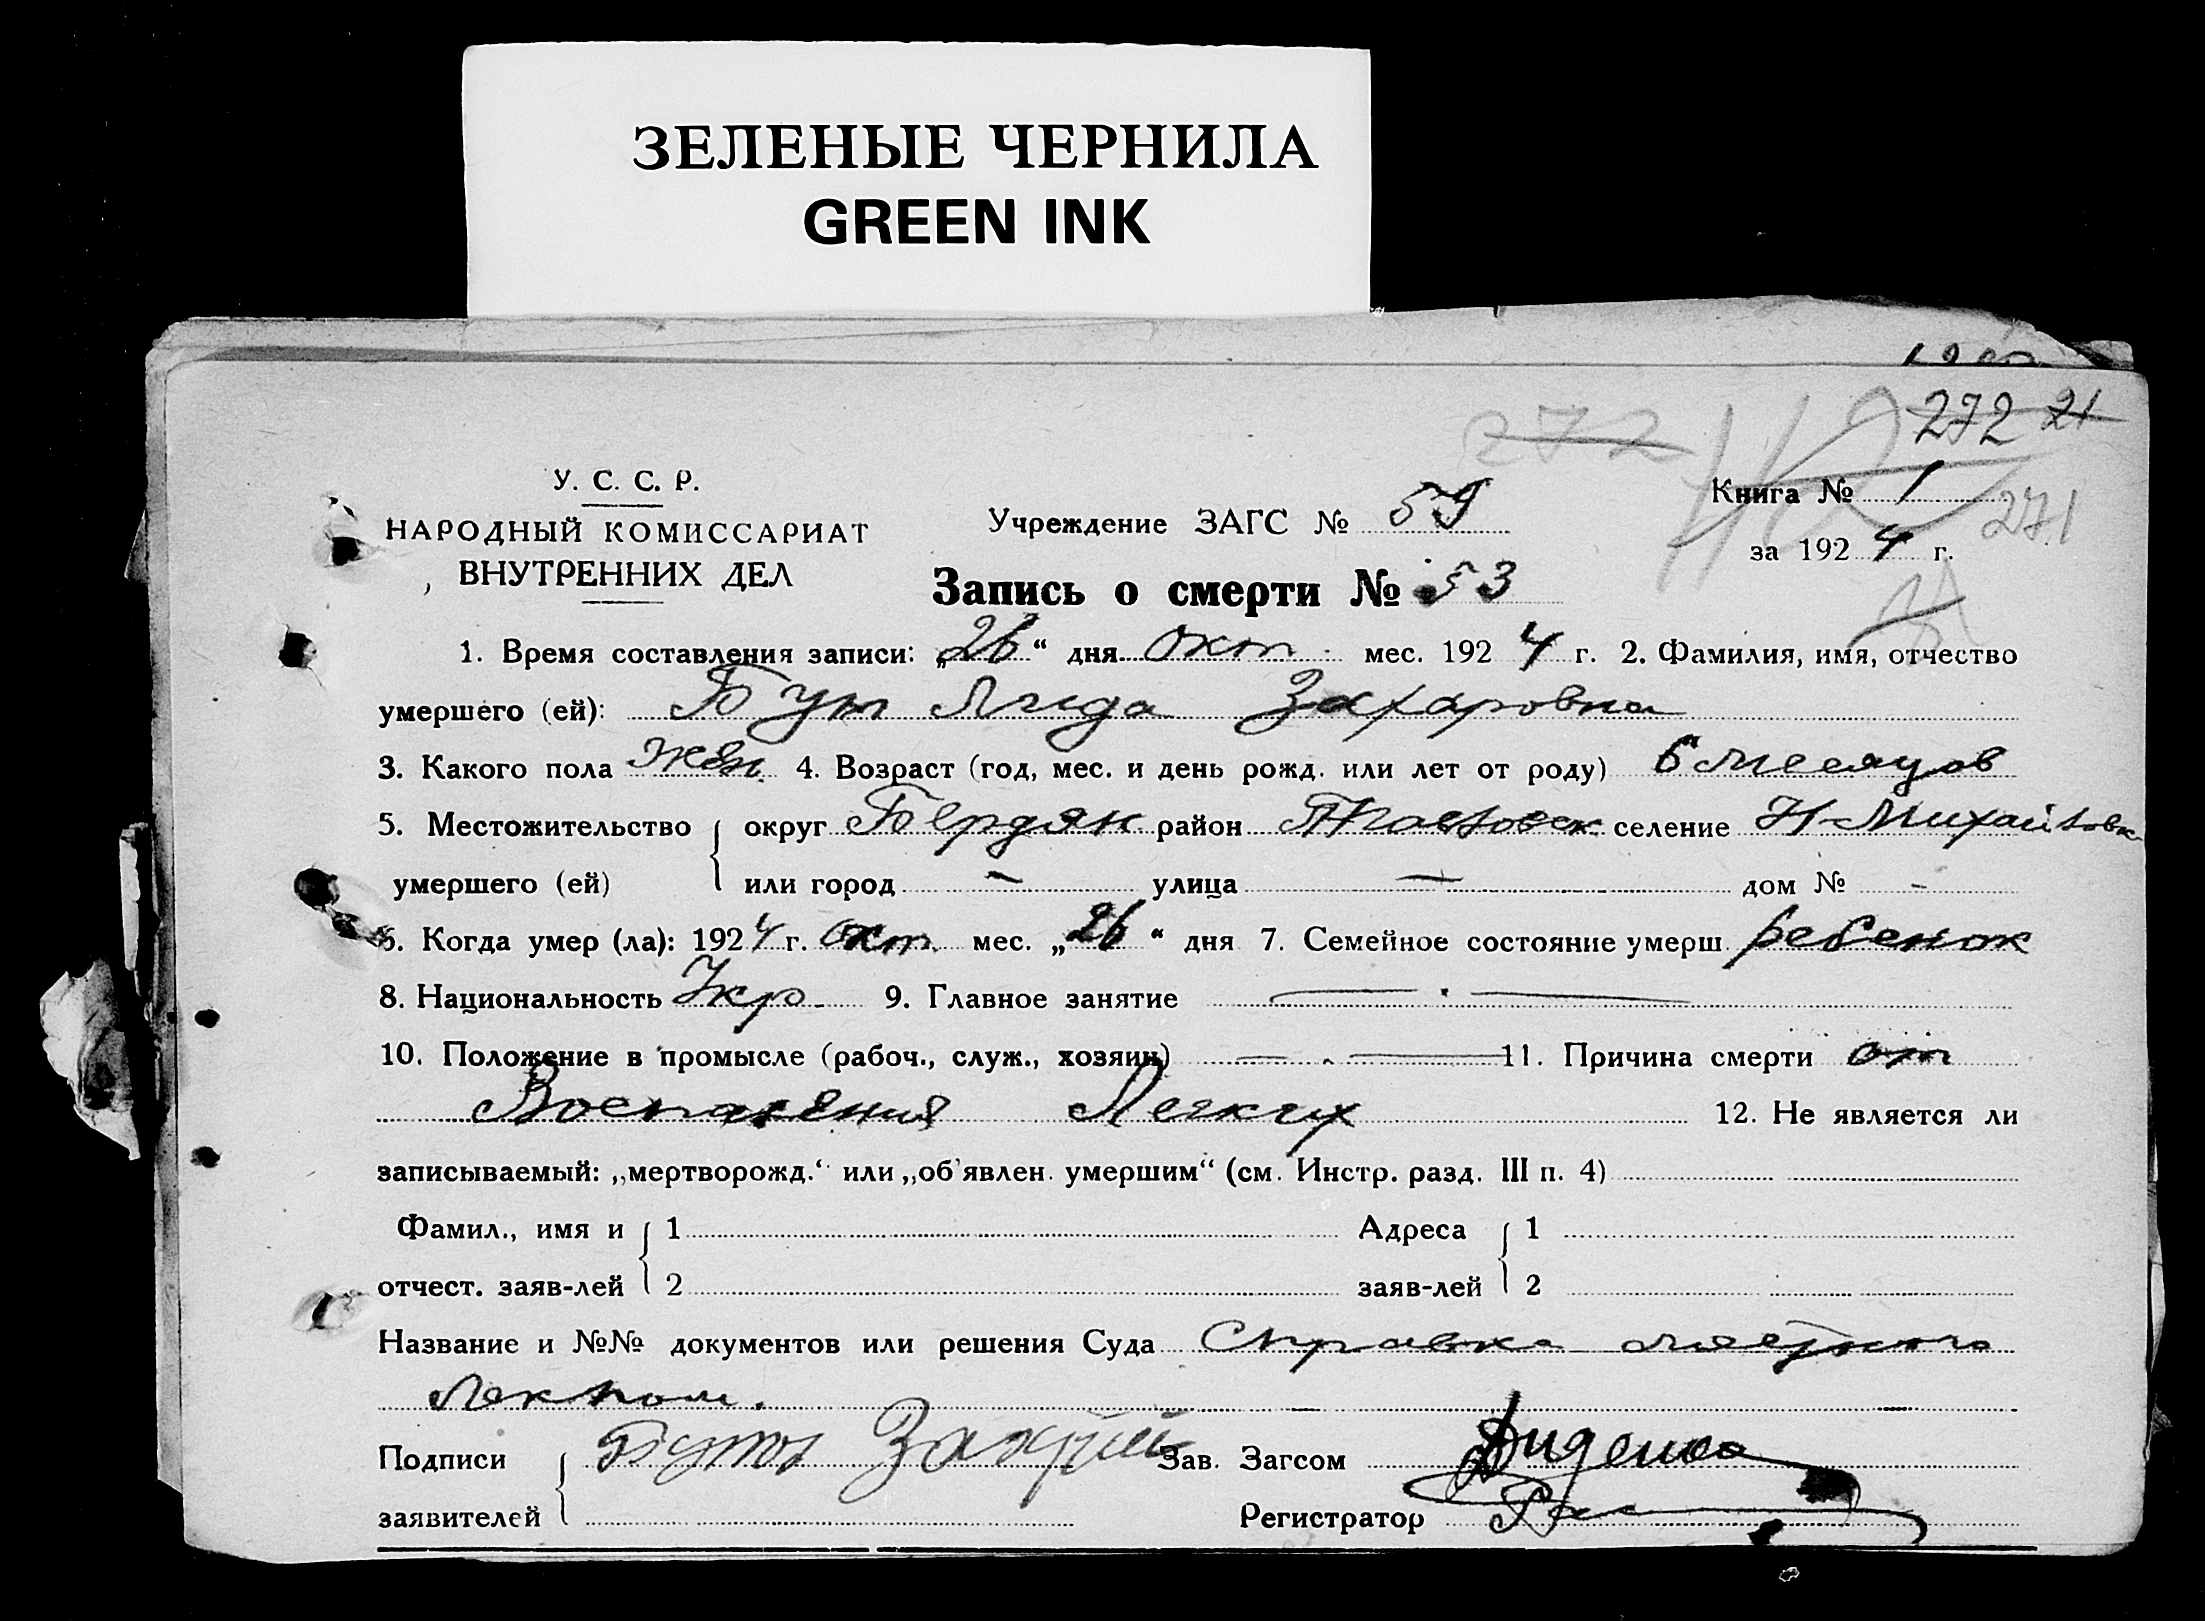 ЗЕЛЕНЫЕ ЧЕРНИЛА
GREEN INK
272 272 21
У. С. С. Р.
Книга № 1
271
НАРОДНЫЙ КОМИССАРИАТ
Учреждение ЗАГС № 59
за 1924 г.
ВНУТРЕННИХ ДЕЛ
Запись о смерти № 53
1. Время составления записи: „26“ дня окт. мес. 1924 г. 2. Фамилия, имя, отчество
умершего (ей): Бут Лида Захаровна
3. Какого пола жен. 4. Возраст (год, мес. и день рожд. или лет от роду) 6 месяцов
5. Местожительство округ Бердян район селение Н-Михайловк
умершего (ей) или город – улица — дом № -
6. Когда умер (ла): 1924 г. окт. мес. „26“ дня 7. Семейное состояние умерш. ребенок
8. Национальность Укр. 9. Главное занятие —
10. Положение в промысле (рабоч., служ., хозяин) — 11. Причина смерти от
Воспаления Легких 12. Не является ли
записываемый: „мертворожд.“ или „об'явлен. умершим“ (см. Инстр. разд. III п. 4)
Фамил., имя и 1 Адреса 1
отчест. заяв-лей 2 заяв-лей 2
Название и №№ документов или решения Суда Справка
Подписи Захрий Зав. Загсом Диденко
заявителей Регистратор